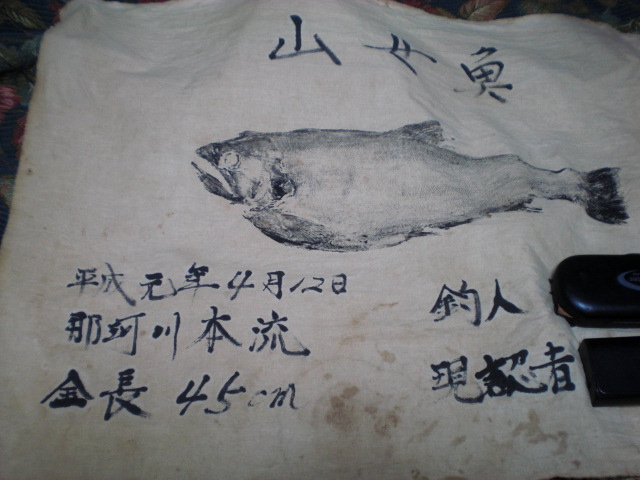 山女魚
平成元年4月12日
那珂川本流
全長 45cm
釣人
現認者